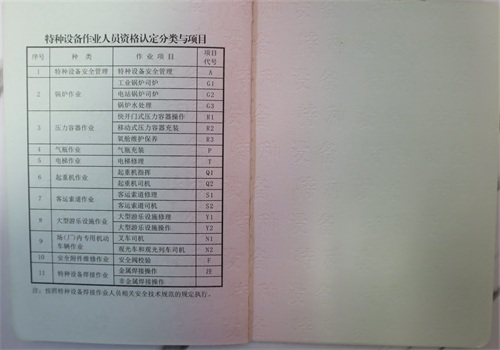 特种设备作业人员资格认定分类与项目
序号 种 类 作 业 项 目 项目代号
1 特种设备安全管理 特种设备安全管理 A
2 锅炉作业 工业锅炉司炉 G1
电站锅炉司炉 G2
锅炉水处理 G3
3 压力容器作业 快开门式压力容器操作 R1
移动式压力容器充装 R2
氧舱维护保养 R3
4 气瓶作业 气瓶充装 P
5 电梯作业 电梯修理 T
6 起重机作业 起重机指挥 Q1
起重机司机 Q2
7 客运索道作业 客运索道修理 S1
客运索道司机 S2
8 大型游乐设施作业 大型游乐设施修理 Y1
大型游乐设施操作 Y2
9 场(厂)内专用机动车辆作业 叉车司机 N1
观光车和观光列车司机 N2
10 安全附件维修作业 安全阀校验 F
11 特种设备焊接作业 金属焊接操作 注
非金属焊接操作
注：按照特种设备焊接作业人员相关安全技术规范的规定执行。